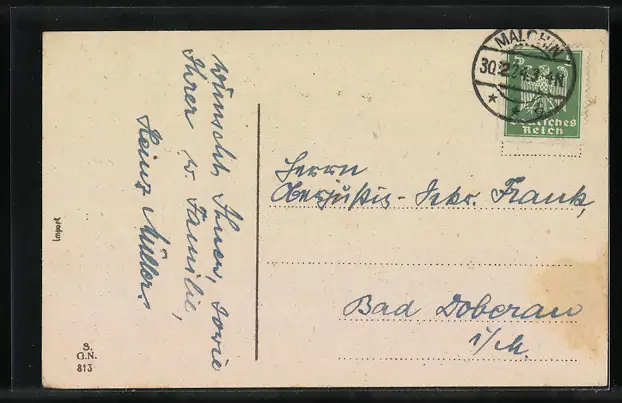 MALCHIN
30.12.24.
Deutsches
Reich
wünscht Ihnen, sowie
Ihrer w. Familie,
Heinz Müller.
Herrn
Oberjustiz-Sekr. Frank,
Bad Doberan
i/M.
Import
S.
G.N.
813